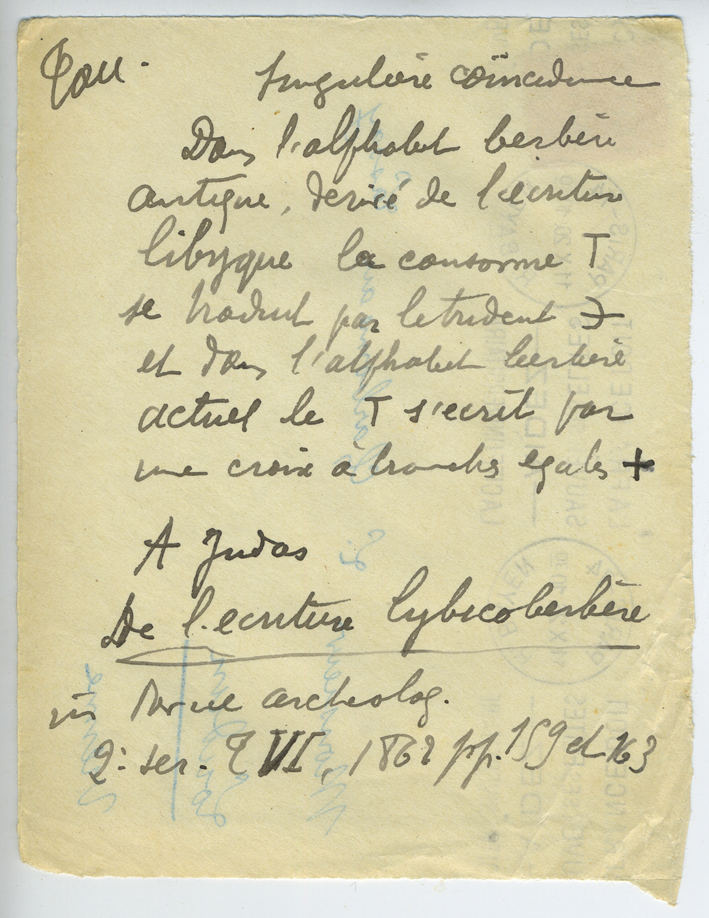 Singulière coïncidence
Dans l'alphabet berbère
antique, derivé de l'ecriture
libyque la consonne T
se traduit par le trident ∋
et dans l'alphabet berbere
actuel le T s'ecrit par
une croix à branches egales +
A Judas
De l'ecriture lybicoberbère
in Revue archeolog.
2e ser. T VI, 1862 pp. 159 et 163